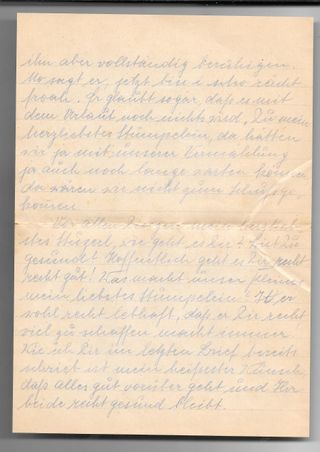 ihn aber vollständig beruhigen.
Mo sagt er, jetzt bin i scho recht
froah. Er glaubt sogar, daß es mit
dem Urlaub noch nichts wird. Du mein
herzliebstes Stumpelein, da hätten
wir ja mit unserer Vermählung
ja auch noch lange warten können
da wären wir nicht zum
kommen.
Vor allen mein herzlieb-
stes, wie geht es Dir? Bist Du
gesund? Hoffentlich geht es Dir recht
recht gut! Was macht unser kleines
mein liebstes Stumpelein? Ist er
wohl recht lebhaft, daß er Dir recht
viel zu schaffen macht immer.
Wie ich Dir im letzten Brief bereits
schrieb ist mein heißester Wunsch
daß alles gut vorüber geht und Ihr
beide recht gesund bleibt.